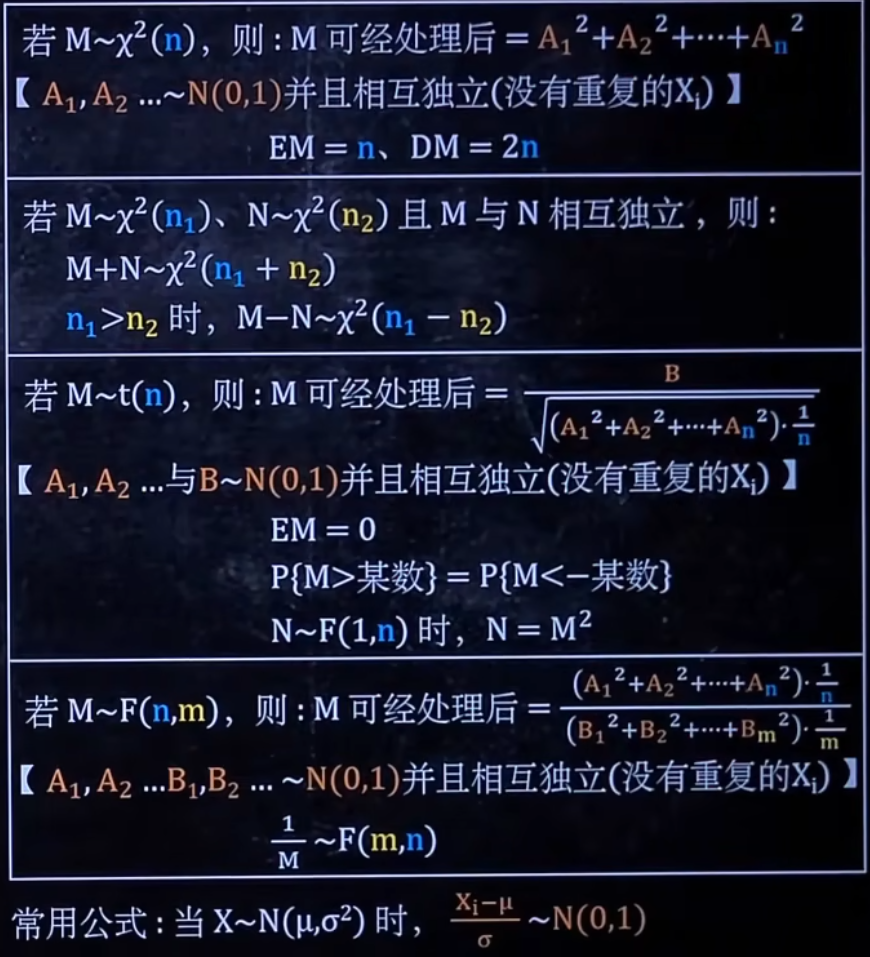 若 M~χ²(n)，则：M 可经处理后 = A₁²+A₂²+⋯+Aₙ²
【 A₁, A₂ …~N(0,1)并且相互独立(没有重复的Xᵢ) 】
EM = n、DM = 2n
若 M~χ²(n₁)、N~χ²(n₂) 且 M 与 N 相互独立，则：
M+N~χ²(n₁ + n₂)
n₁>n₂ 时，M−N~χ²(n₁ − n₂)
若 M~t(n)，则：M 可经处理后 = B/√((A₁²+A₂²+⋯+Aₙ²)·1/n)
【 A₁, A₂ …与B~N(0,1)并且相互独立(没有重复的Xᵢ) 】
EM = 0
P{M>某数} = P{M<−某数}
N~F(1,n) 时，N = M²
若 M~F(n,m)，则：M 可经处理后 = (A₁²+A₂²+⋯+Aₙ²)·1/n / (B₁²+B₂²+⋯+Bₘ²)·1/m
【 A₁, A₂ …B₁,B₂ … ~N(0,1)并且相互独立(没有重复的Xᵢ) 】
1/M ~F(m,n)
常用公式：当 X~N(μ,σ²) 时，(Xᵢ−μ)/σ ~N(0,1)